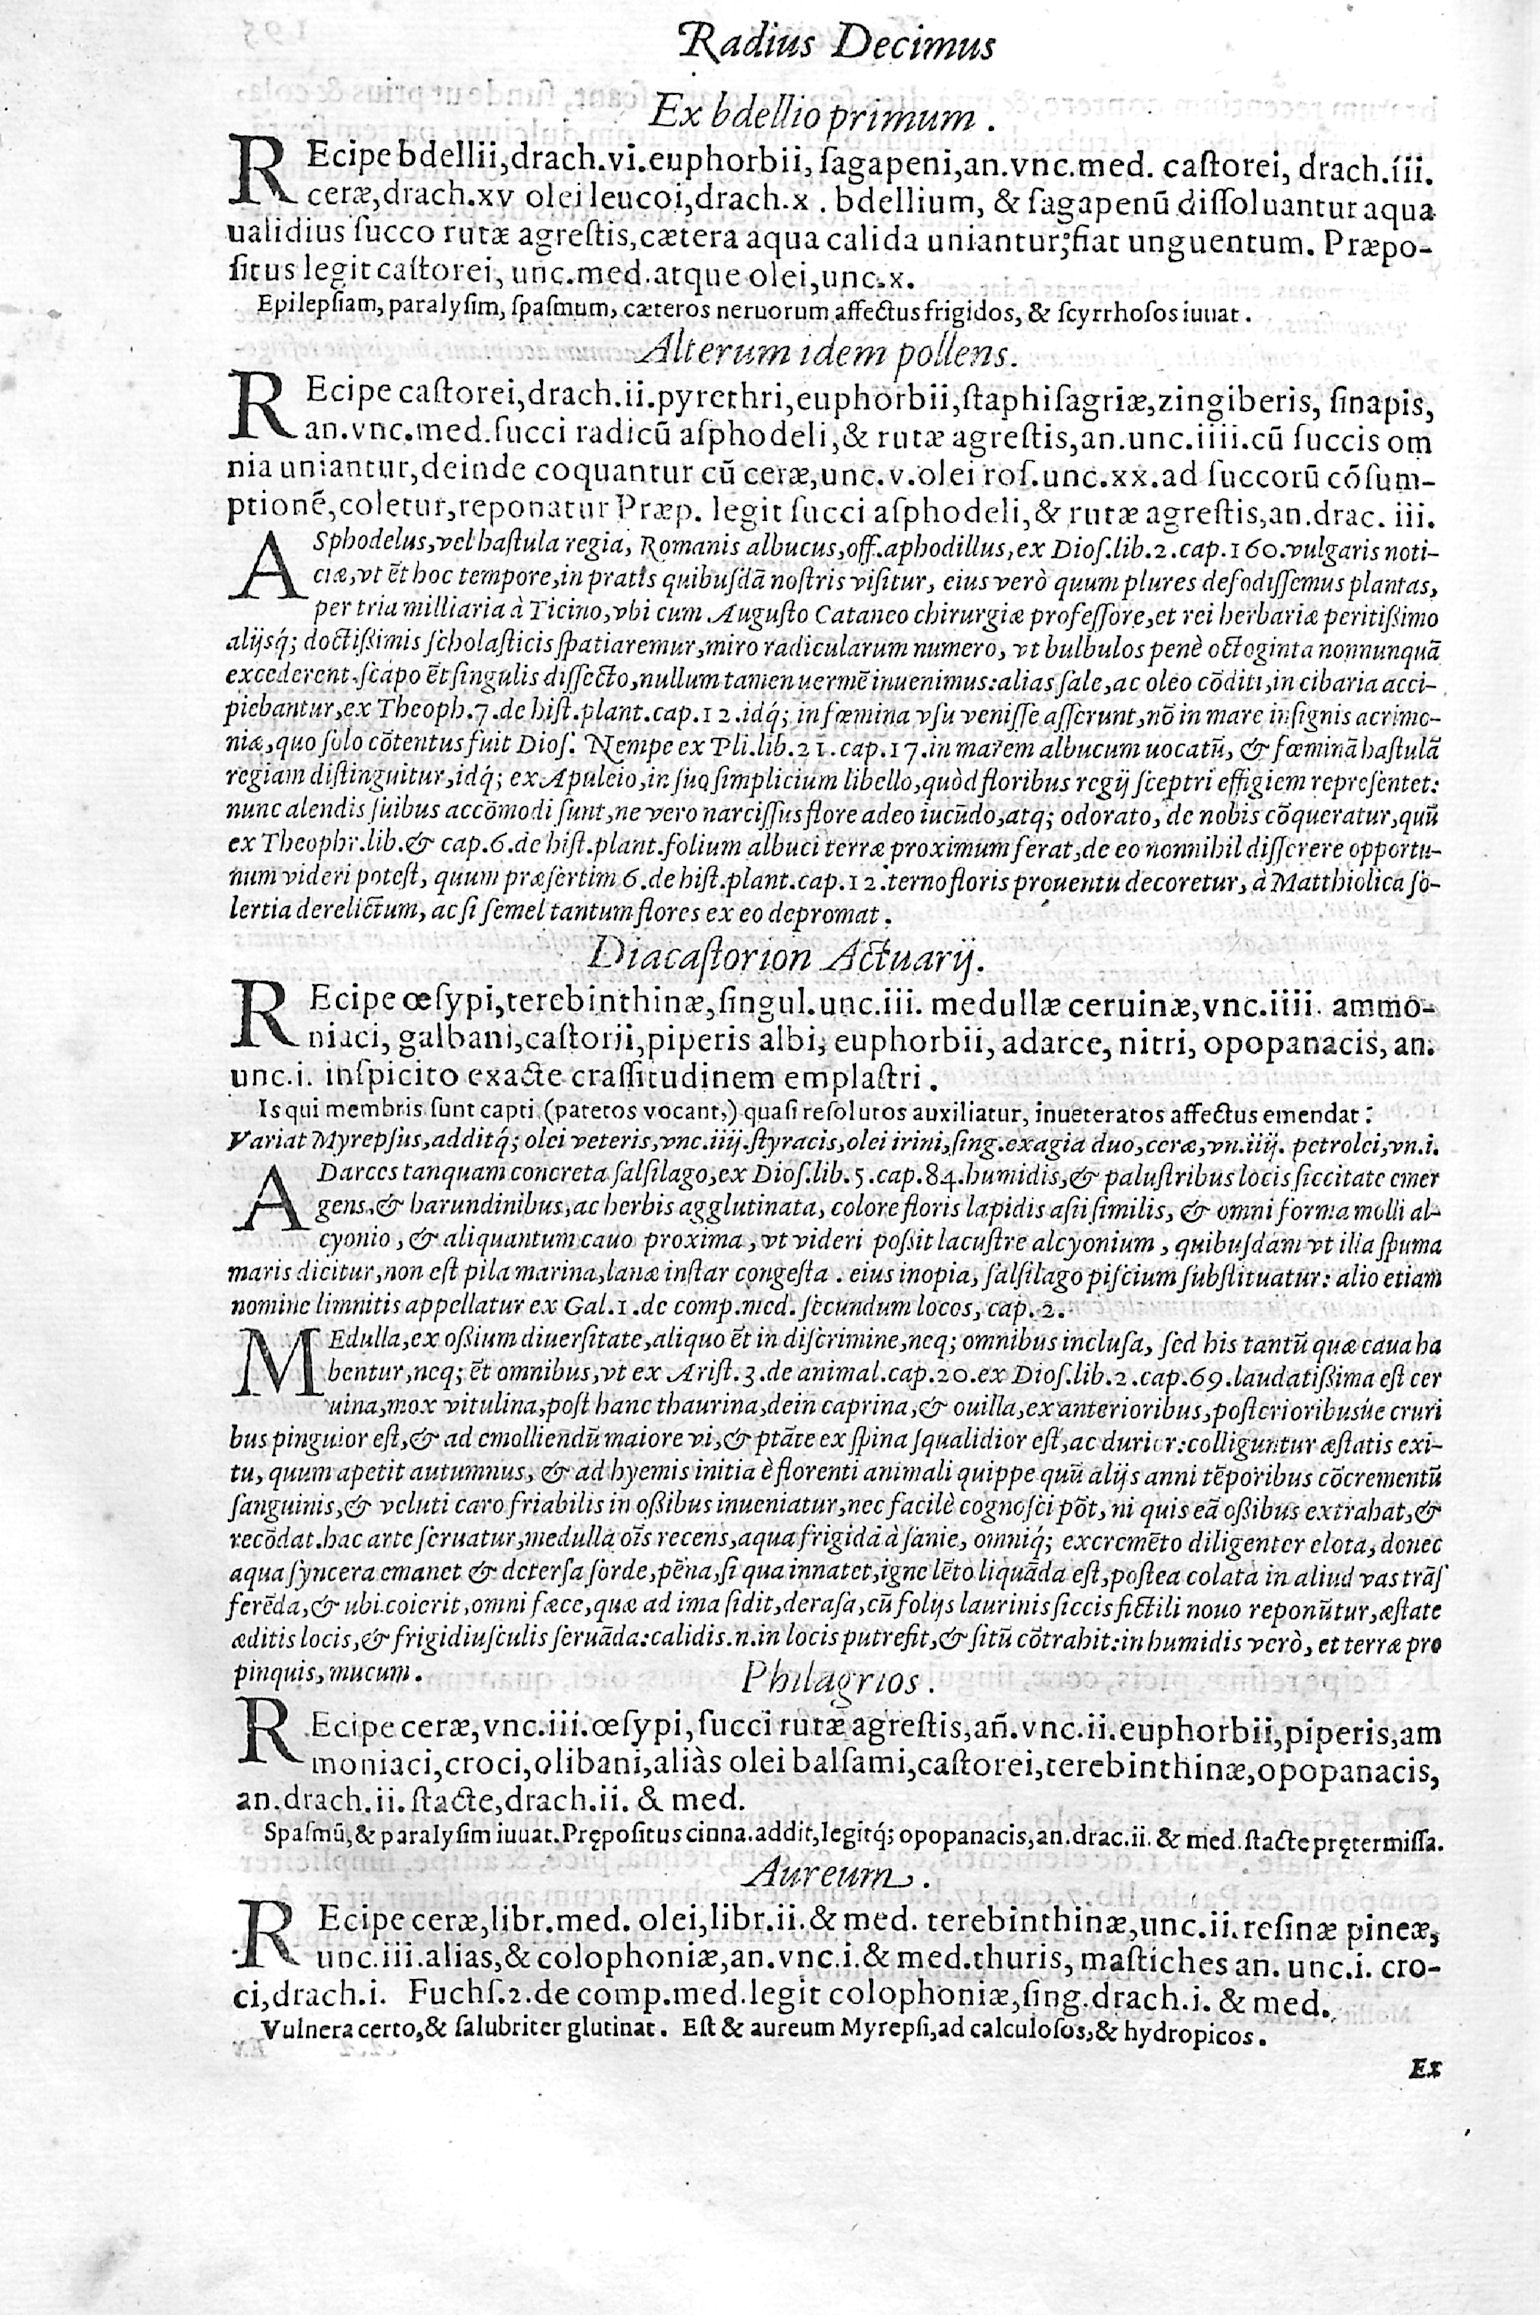 Radius Decimus
Ex bdellio primum.
REcipe bdellii, drach.vi.euphorbii, ſagapeni,an.vnc.med. caſtorei, drach.iii.
ceræ,drach.xv olei leucoi,drach.x. bdellium, & ſagapenũ diſſoluantur aqua
ualidius ſucco rutæ agreſtis, cætera aqua calida uniantur, fiat unguentum. Præpo-
ſitus legit caſtorei, unc.med.atque olei,unc.x.
Epilepſiam, paralyſim, ſpaſmum, cæteros neruorum affectus frigidos, & ſcyrrhoſos iuuat.
Alterum idem pollens.
REcipe caſtorei,drach.ii.pyrethri,euphorbii,ſtaphiſagriæ,zingiberis, ſinapis,
an.vnc.med.ſucci radicũ aſphodeli,& rutæ agreſtis,an.unc.iiii.cũ ſuccis om
nia uniantur,deinde coquantur cũ ceræ,unc.v.olei roſ.unc.xx.ad ſuccorũ cõſum-
ptionẽ,coletur,reponatur Præp. legit ſucci aſphodeli,& rutæ agreſtis,an.drac. iii.
ASphodelus,vel haſtula regia, Romanis albucus,off.aphodillus,ex Dioſ.lib.2.cap.160.vulgaris noti-
ciæ,vt ẽt hoc tempore,in pratis quibuſdã noſtris viſitur, eius verò quum plures defodiſſemus plantas,
per tria milliaria à Ticino,vbi cum Auguſto Cataneo chirurgiæ profeſſore,et rei herbariæ peritißimo
alijsq́; doctißimis ſcholaſticis ſpatiaremur,miro radicularum numero, vt bulbulos penè octoginta nonnunquã
excederent,ſcapo ẽt ſingulis diſſecto,nullum tamen uermẽ inuenimus:alias ſale,ac oleo cõditi,in cibaria acci-
piebantur,ex Theoph.7.de hiſt.plant.cap.12.idq́; in fœmina vſu veniſſe aſſerunt,nõ in mare inſignis acrimo-
niæ,quo ſolo cõtentus fuit Dioſ. Nempe ex Pli.lib.21.cap.17.in marem albucum uocatũ, & fœminã haſtulã
regiam diſtinguitur,idq́; ex Apuleio,in ſuo ſimplicium libello,quòd floribus regij ſceptri effigiem repreſentet:
nunc alendis ſuibus accõmodi ſunt,ne vero narciſſus flore adeo iucũdo,atq; odorato, de nobis cõqueratur,quũ
ex Theophr.lib.& cap.6.de hiſt.plant.folium albuci terræ proximum ferat,de eo nonnihil diſſerere opportu-
num videri poteſt, quum præſertim 6.de hiſt.plant.cap.12.terno floris prouentu decoretur, à Matthiolica ſo-
lertia derelictum, ac ſi ſemel tantum flores ex eo depromat.
Diacaſtorion Actuarij.
REcipe œſypi,terebinthinæ,ſingul.unc.iii. medullæ ceruinæ,vnc.iiii. ammo-
niaci, galbani,caſtorii,piperis albi, euphorbii, adarce, nitri, opopanacis, an.
unc.i. inſpicito exacte craſſitudinem emplaſtri.
Is qui membris ſunt capti (paretos vocant,) quaſi reſolutos auxiliatur, inueteratos affectus emendat:
Variat Myrepſus,additq́; olei veteris,vnc.iiij.ſtyracis,olei irini,ſing.exagia duo,ceræ,vn.iiij. petrolei,vn.i.
ADarces tanquam concreta ſalſilago,ex Dioſ.lib.5.cap.84.humidis,& paluſtribus locis ſiccitate emer
gens,& harundinibus,ac herbis agglutinata, colore floris lapidis aſii ſimilis, & omni forma molli al-
cyonio, & aliquantum cauo proxima, vt videri poßit lacuſtre alcyonium, quibuſdam vt illa ſpuma
maris dicitur,non eſt pila marina,lanæ inſtar congeſta. eius inopia, ſalſilago piſcium ſubſtituatur: alio etiam
nomine limnitis appellatur ex Gal.1.de comp.med. ſecundum locos, cap.2.
MEdulla,ex oßium diuerſitate,aliquo ẽt in diſcrimine,neq; omnibus incluſa, ſed his tantũ quæ caua ha
bentur,neq; ẽt omnibus,vt ex Ariſt.3.de animal.cap.20.ex Dioſ.lib.2.cap.69.laudatißima eſt cer
uina,mox vitulina,poſt hanc thaurina,dein caprina,& ouilla,ex anterioribus,poſterioribusúe cruri
bus pinguior eſt,& ad emolliendũ maiore vi,& ptãte ex ſpina ſqualidior eſt,ac durior:colliguntur æſtatis exi-
tu, quum apetit autumnus, & ad hyemis initia è florenti animali quippe quũ alijs anni tẽporibus cõcrementũ
ſanguinis,& veluti caro friabilis in oßibus inueniatur,nec facilè cognoſci põt, ni quis eã oßibus extrahat,&
recõdat.hac arte ſeruatur,medulla oĩs recens,aqua frigida à ſanie, omniq́; excremẽto diligenter elota, donec
aqua ſyncera emanet & deterſa ſorde,pẽna,ſi qua innatet,igne lẽto liquãda eſt,poſtea colata in aliud vas trãſ
ferẽda,& ubi coierit,omni fæce,quæ ad ima ſidit,deraſa,cũ folijs laurinis ſiccis fictili nouo reponũtur,æſtate
æditis locis,& frigidiuſculis ſeruãda:calidis.n.in locis putrefit,& ſitũ cõtrahit:in humidis verò, et terræ pro
pinquis, mucum.
Philagrios.
REcipe ceræ,vnc.iii.œſypi,ſucci rutæ agreſtis,añ.vnc.ii.euphorbii,piperis,am
moniaci,croci,olibani,aliàs olei balſami,caſtorei,terebinthinæ,opopanacis,
an.drach.ii.ſtacte,drach.ii. & med.
Spaſmũ,& paralyſim iuuat.Prępoſitus cinna.addit,legitq́; opopanacis,an.drac.ii. & med.ſtacte prętermiſſa.
Aureum.
REcipe ceræ,libr.med. olei,libr.ii.& med. terebinthinæ,unc.ii.reſinæ pineæ,
unc.iii.alias,& colophoniæ,an.vnc.i.& med.thuris, maſtiches an. unc.i. cro-
ci,drach.i. Fuchſ.2.de comp.med.legit colophoniæ,ſing.drach.i. & med.
Vulnera certo,& ſalubriter glutinat. Eſt & aureum Myrepſi,ad calculoſos,& hydropicos.
Ex